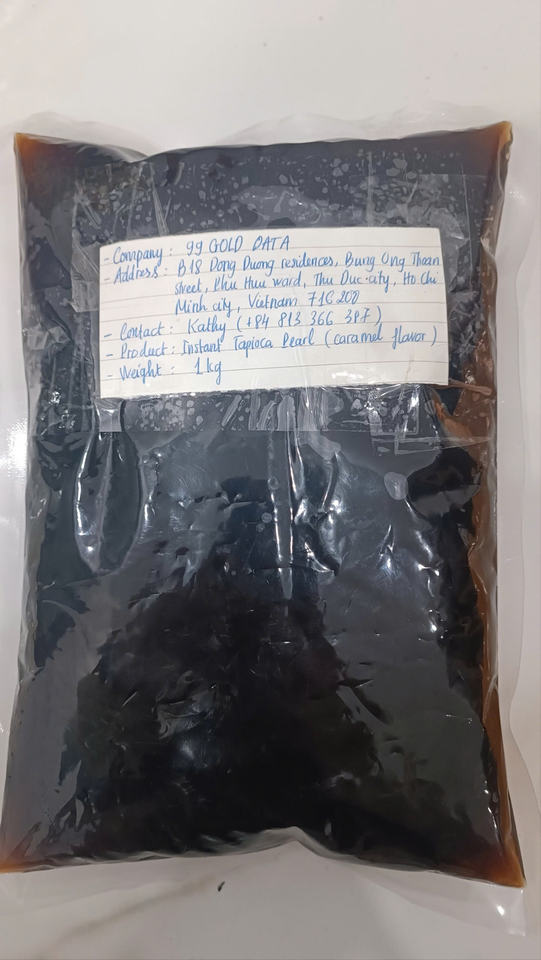 - Company : 99 GOLD DATA
- Address : B18 Dong Duong residences, Bung Ong Thoan
street, Phu Huu ward, Thu Duc city, Ho Chi
Minh city, Vietnam 716200
- Contact : Kathy (+84 813 366 387)
- Product : Instant Tapioca Pearl (caramel flavor)
- Weight : 1 kg